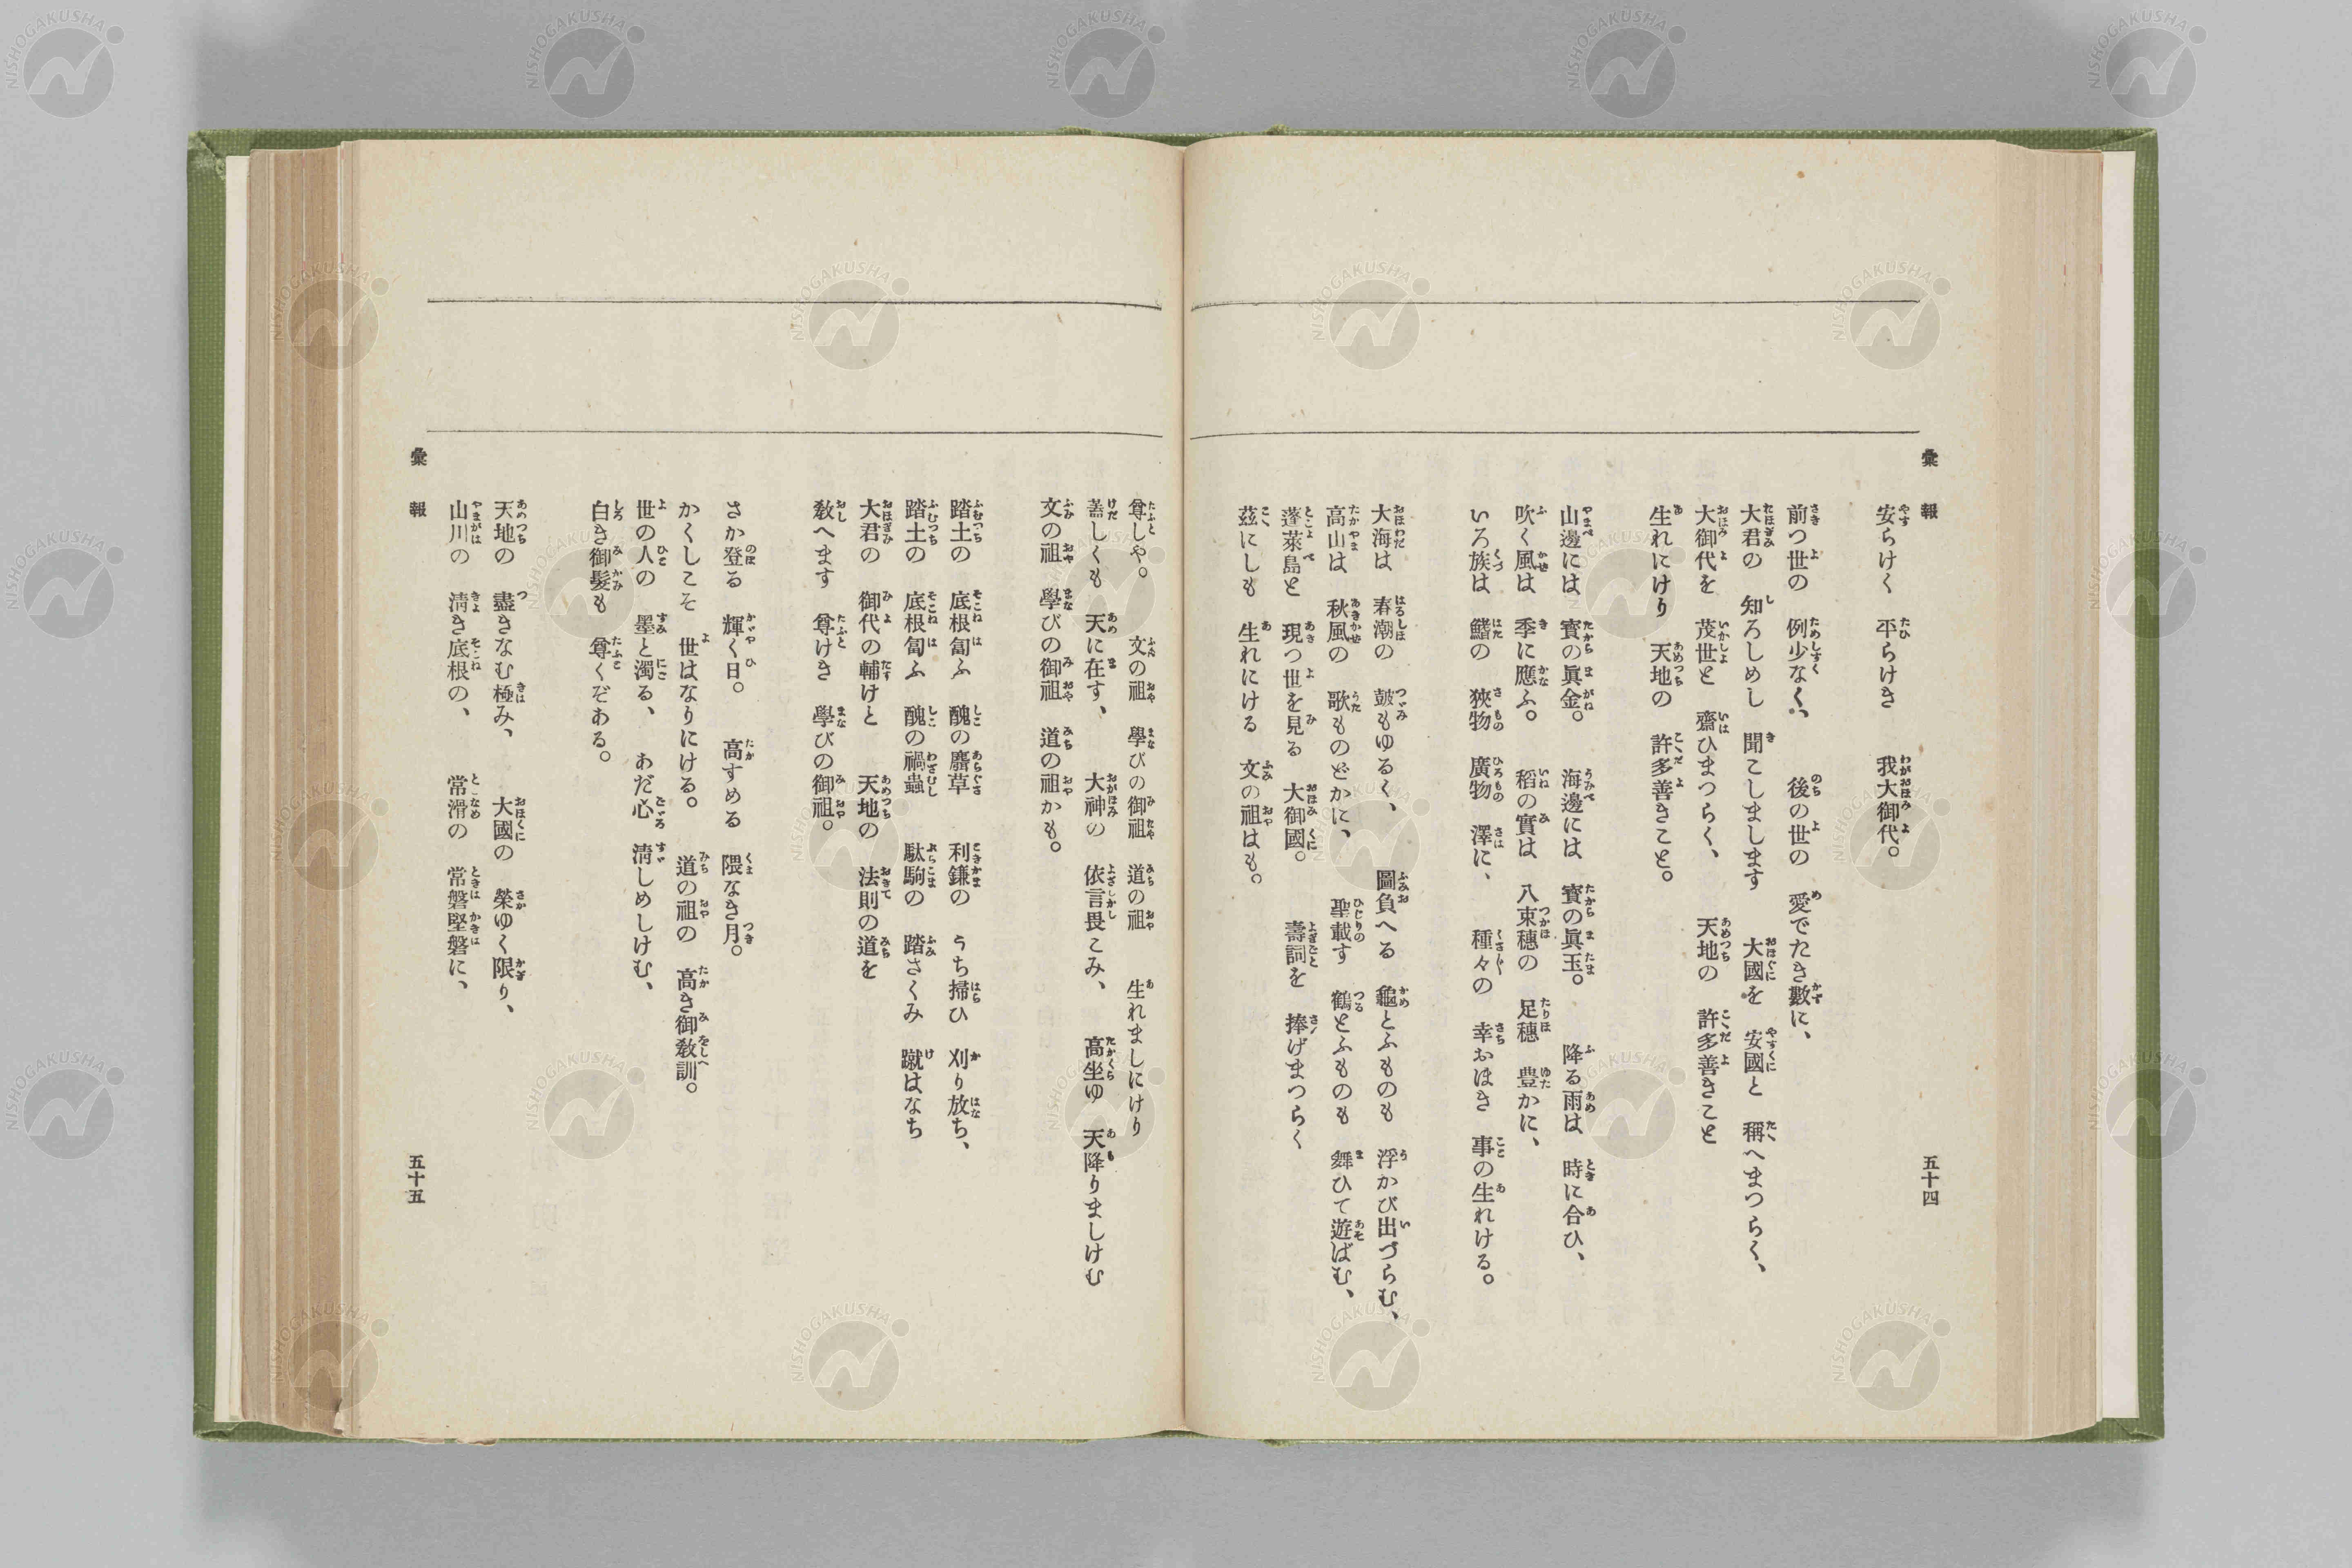 彙報
安らけく　平らけき　我大御代。
前つ世の　例少なく、　後の世の　愛でたき數に、
大君の　知ろしめし　聞こしまします　大國を　安國と　稱へまつらく、
大御代を　茂世と　齋ひまつらく、　天地の　許多善きこと
生れにけり　天地の　許多善きこと。
山邊には　寳の眞金。　海邊には　寳の眞玉。　降る雨は　時に合ひ、
吹く風は　季に應ふ。　稻の實は　八束穗の　足穗　豊かに、
いろ族は　鰭の　狹物　廣物　澤に、　種々の　幸おほき　事の生れける。
大海は　春潮の　皷もゆるく、　圖負へる　龜とふものも　浮かび出づらむ、
高山は　秋風の　歌ものどかに、　聖載す　鶴とふものも　舞ひて遊ばむ、
蓬萊島と　現つ世を見る　大御國。　壽詞を　捧げまつらく
茲にしも　生れにける　文の祖はも。
五十四
尊しや。　文の祖　學びの御祖　道の祖　生れましにけり
蓋しくも　天に在す、　大神の　依言畏こみ、　高坐ゆ　天降りましけむ
文の祖　學びの御祖　道の祖かも。
踏土の　底根匐ふ　醜の麤草　利鎌の　うち掃ひ　刈り放ち、
踏土の　底根匐ふ　醜の禍蟲　駄駒の　踏さくみ　蹴はなち
大君の　御代の輔けと　天地の　法則の道を
敎へます　尊けき　學びの御祖。
さか登る　輝く日。　高すめる　隈なき月。
かくしこそ　世はなりにける。　道の祖の　高き御敎訓。
世の人の　墨と濁る、　あだ心　淸しめしけむ、
白き御髮も　尊くぞある。
天地の　盡きなむ極み、　大國の　榮ゆく限り、
山川の　淸き底根の、　常滑の　常磐堅磐に、
彙報
五十五
NISHOGAKUSHA